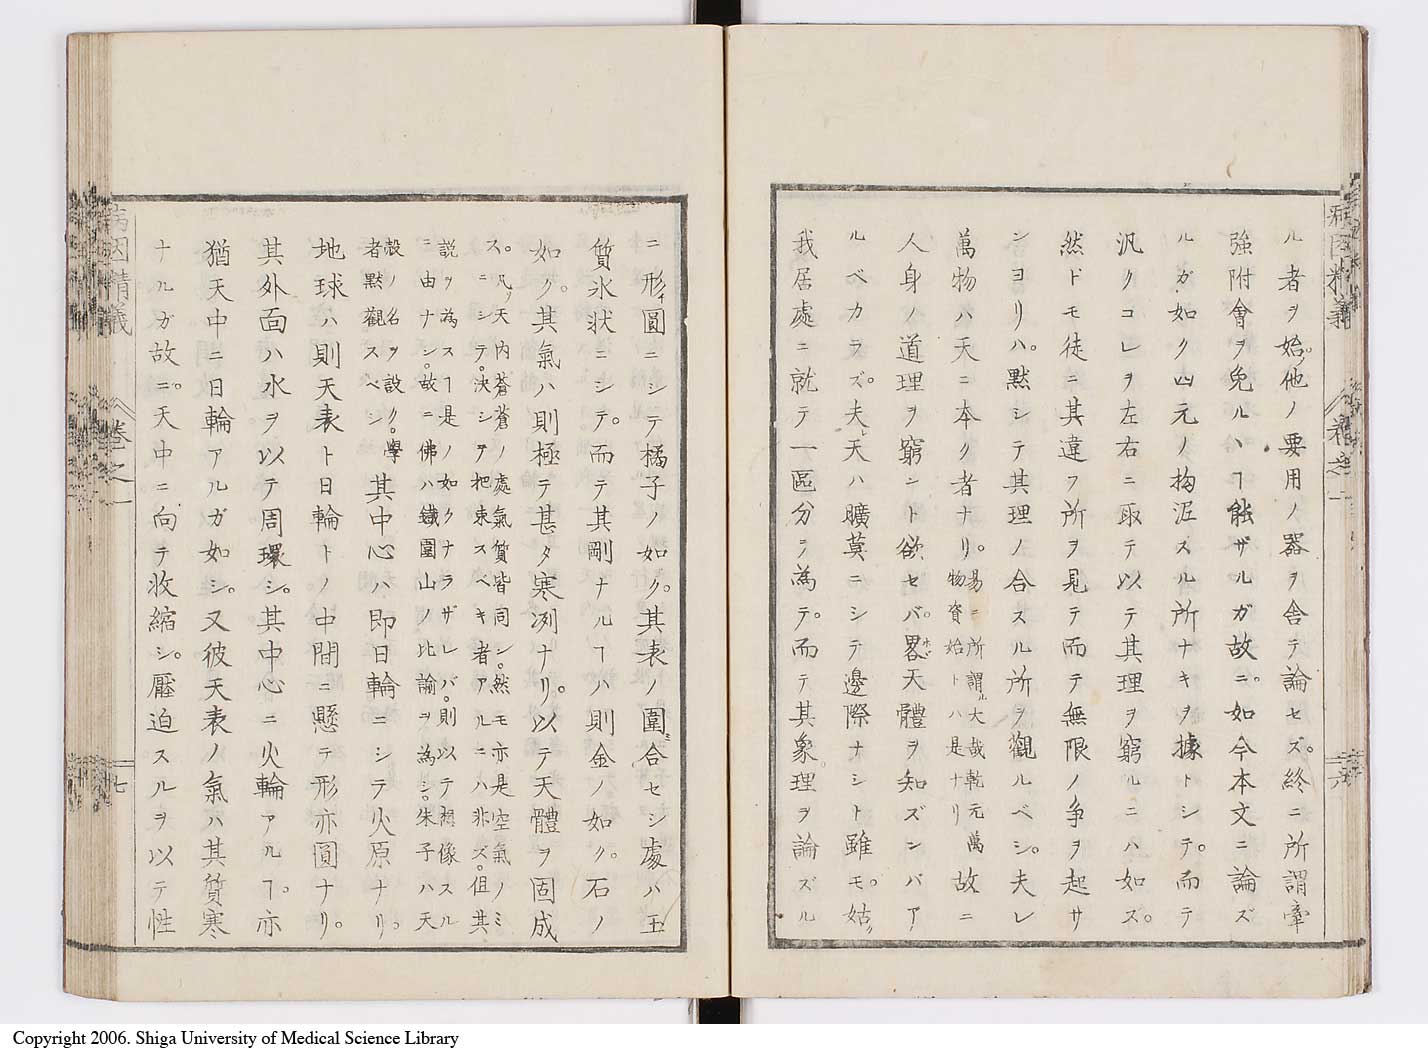 ル者ヲ始。他ノ要用ノ器ヲ舎テ論セズ。終ニ所謂牽
強附會ヲ免ルヽヿ能ザルガ故ニ。如今本文ニ論ズ
ルガ如ク四元ノ拘泥スル所ナキヲ據トシテ。而テ
汎クコレヲ左右ニ取テ以テ其理ヲ窮ルニハ如ズ。
然ドモ徒ニ其違フ所ヲ見テ而テ無限ノ争ヲ起サ
ンヨリハ。黙シテ其理ノ合スル所ヲ觀ルベシ。夫レ
萬物ハ天ニ本ク者ナリ。易ニ所謂ル大哉乾元萬物資始トハ是ナリ故ニ
人身ノ道理ヲ窮ント欲セバ。畧ホボ天體ヲ知ズンバア
ルベカラズ。夫レ天ハ曠莫ニシテ邊際ナシト雖モ。姑ク
我居處ニ就テ一區分ヲ為テ。而テ其象理ヲ論ズル
病因精義 卷之一 六
ニ形チ圓ニシテ橘子ノ如ク。其表ノ圍ミ合セシ處ハ玉
質氷狀ニシテ。而テ其剛ナルヿハ則金ノ如ク。石ノ
如ク。其氣ハ則極テ甚タ寒冽ナリ。以テ天體ヲ固成
ス。凡ソ天内蒼蒼ノ處氣質皆同シ。然モ亦是空氣ノミ
ニシテ。決シテ把束スベキ者アルニハ非ズ。但其
説ヲ為スヿ是ノ如クナラザレバ。則以テ想像スル
ニ由ナシ。故ニ佛ハ鐵圍山ノ比諭ヲ為シ。朱子ハ天
殻ノ名ヲ設ク。學
者默觀スベシ
其中心ハ即日輪ニシテ火原ナリ。
地球ハ則天表ト日輪トノ中間ニ懸テ形亦圓ナリ。
其外面ハ水ヲ以テ周環シ。其中心ニ火輪アルヿ。亦
猶天中ニ日輪アルガ如シ。又彼天表ノ氣ハ其質寒
ナルガ故ニ。天中ニ向テ收縮シ。壓迫スルヲ以テ性
病因精義 卷之一 七
Copyright 2006. Shiga University of Medical Science Library